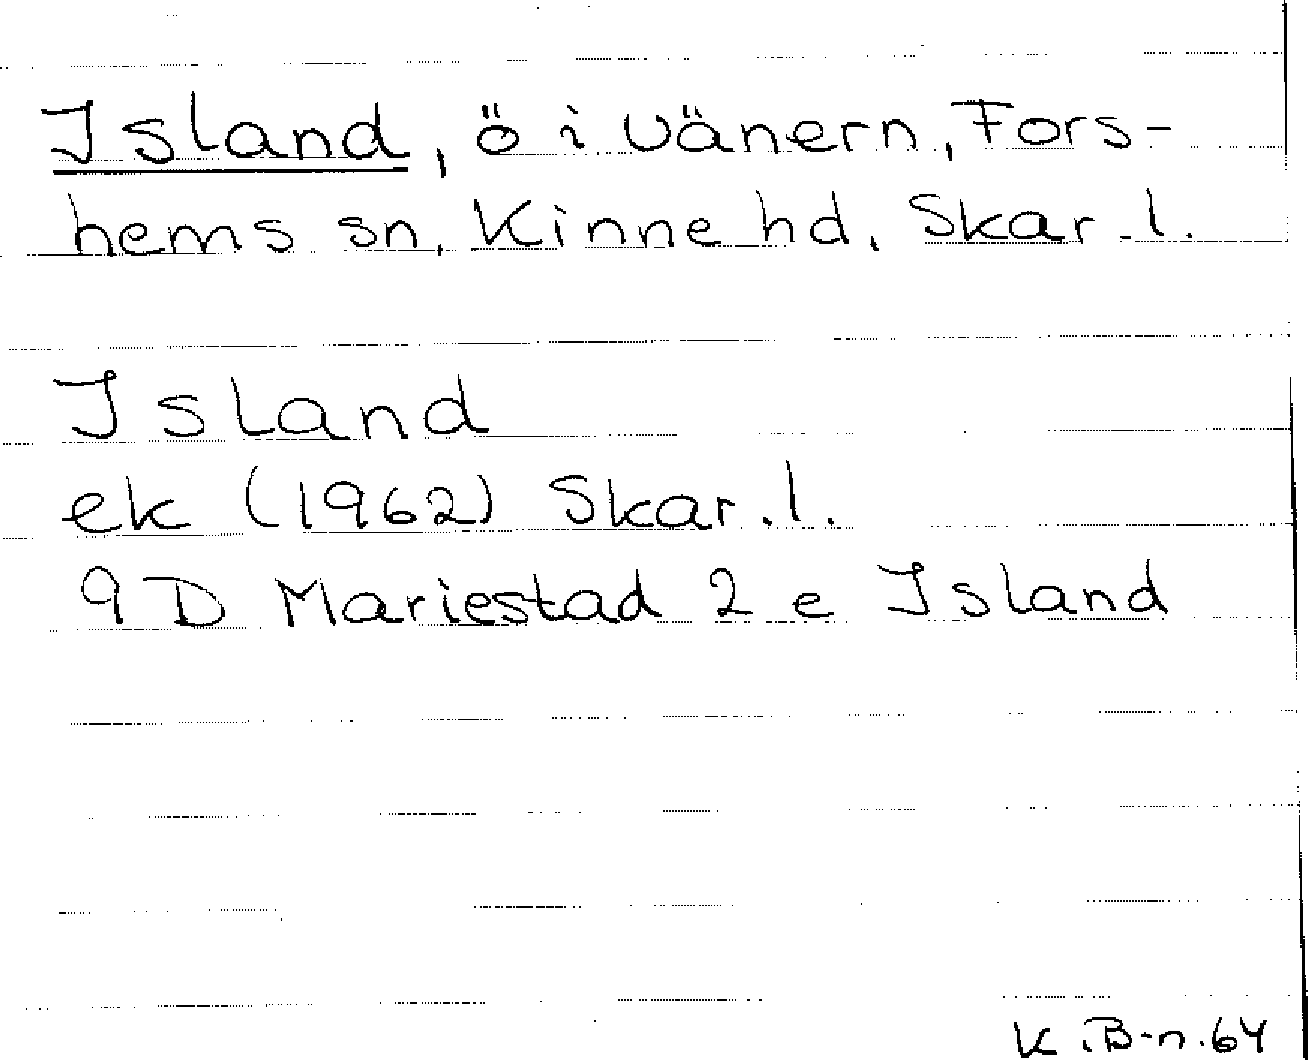 Island, ö i Vänern, Fors-
hems sn, Kinne hd, Skar.l.
Island
ek (1962) Skar.l.
9D Mariestad 2 e Island
K.B-n.64